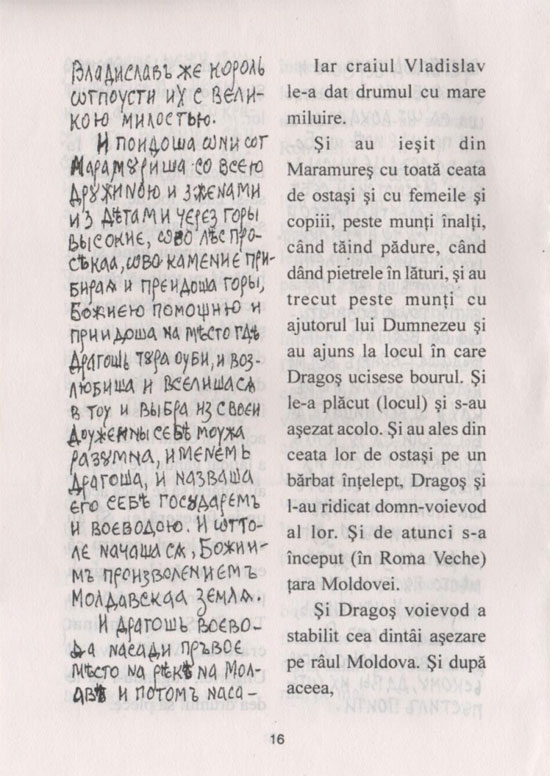 Владиславъ же король
ѿпоусти их с вели-
кою милостью.
И поидоша ѡни ѿ
Марамꙋриша со всею
дрꙋжиною и зженами
и з дѣтами через горы
высокие, ѡво лѣс про-
сѣкаа, ѡво камение при-
бираꙗ и преидоша горы,
Божиею помощию и
приидоша на мѣсто гдѣ
Драгошь тꙋра оуби, и воз-
любиша и вселишасѧ
в тоу и выбра из своеи
дружены себѣ моужа
разꙋмна, именемъ
Драгоша, и назваша
его себѣ государемъ
и воеводою. И ѿто-
ле начаша сѧ, Божии-
мъ произволениемъ
Молдавскаа земла.
И Драгошъ воево-
да насади пръвое
мѣсто на рѣкѣ на Мол-
давѣ и потомъ наса-
Iar craiul Vladislav
le-a dat drumul cu mare
miluire.
Și au ieșit din
Maramureș cu toată ceata
de ostași și cu femeile și
copiii, peste munți înalți,
când tăind pădure, când
dând pietrele în lături, și au
trecut peste munți cu
ajutorul lui Dumnezeu și
au ajuns la locul în care
Dragoș ucisese bourul. Și
le-a plăcut (locul) și s-au
așezat acolo. Și au ales din
ceata lor de ostași pe un
bărbat înțelept, Dragoș și
l-au ridicat domn-voievod
al lor. Și de atunci s-a
început (în Roma Veche)
țara Moldovei.
Și Dragoș voievod a
stabilit cea dintâi așezare
pe râul Moldova. Și după
aceea,
16